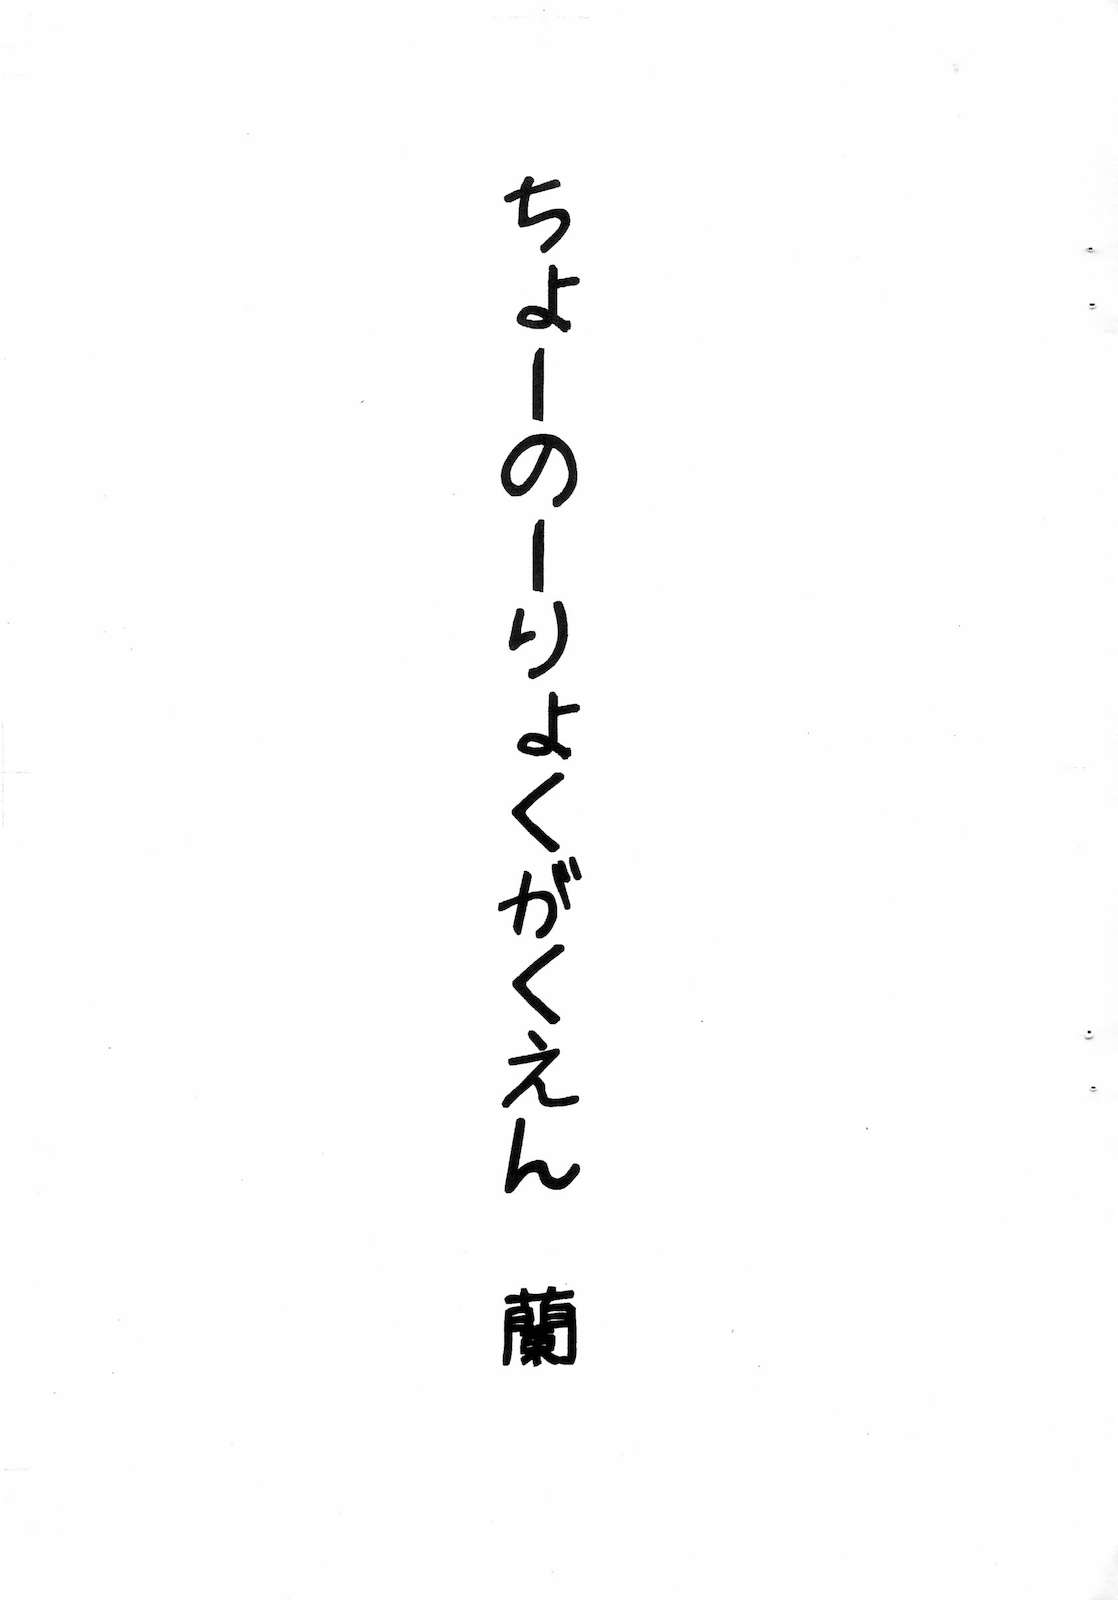 ちょーのーりょくがくえん　蘭